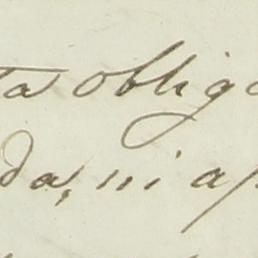 ta obliga
da, ni ap